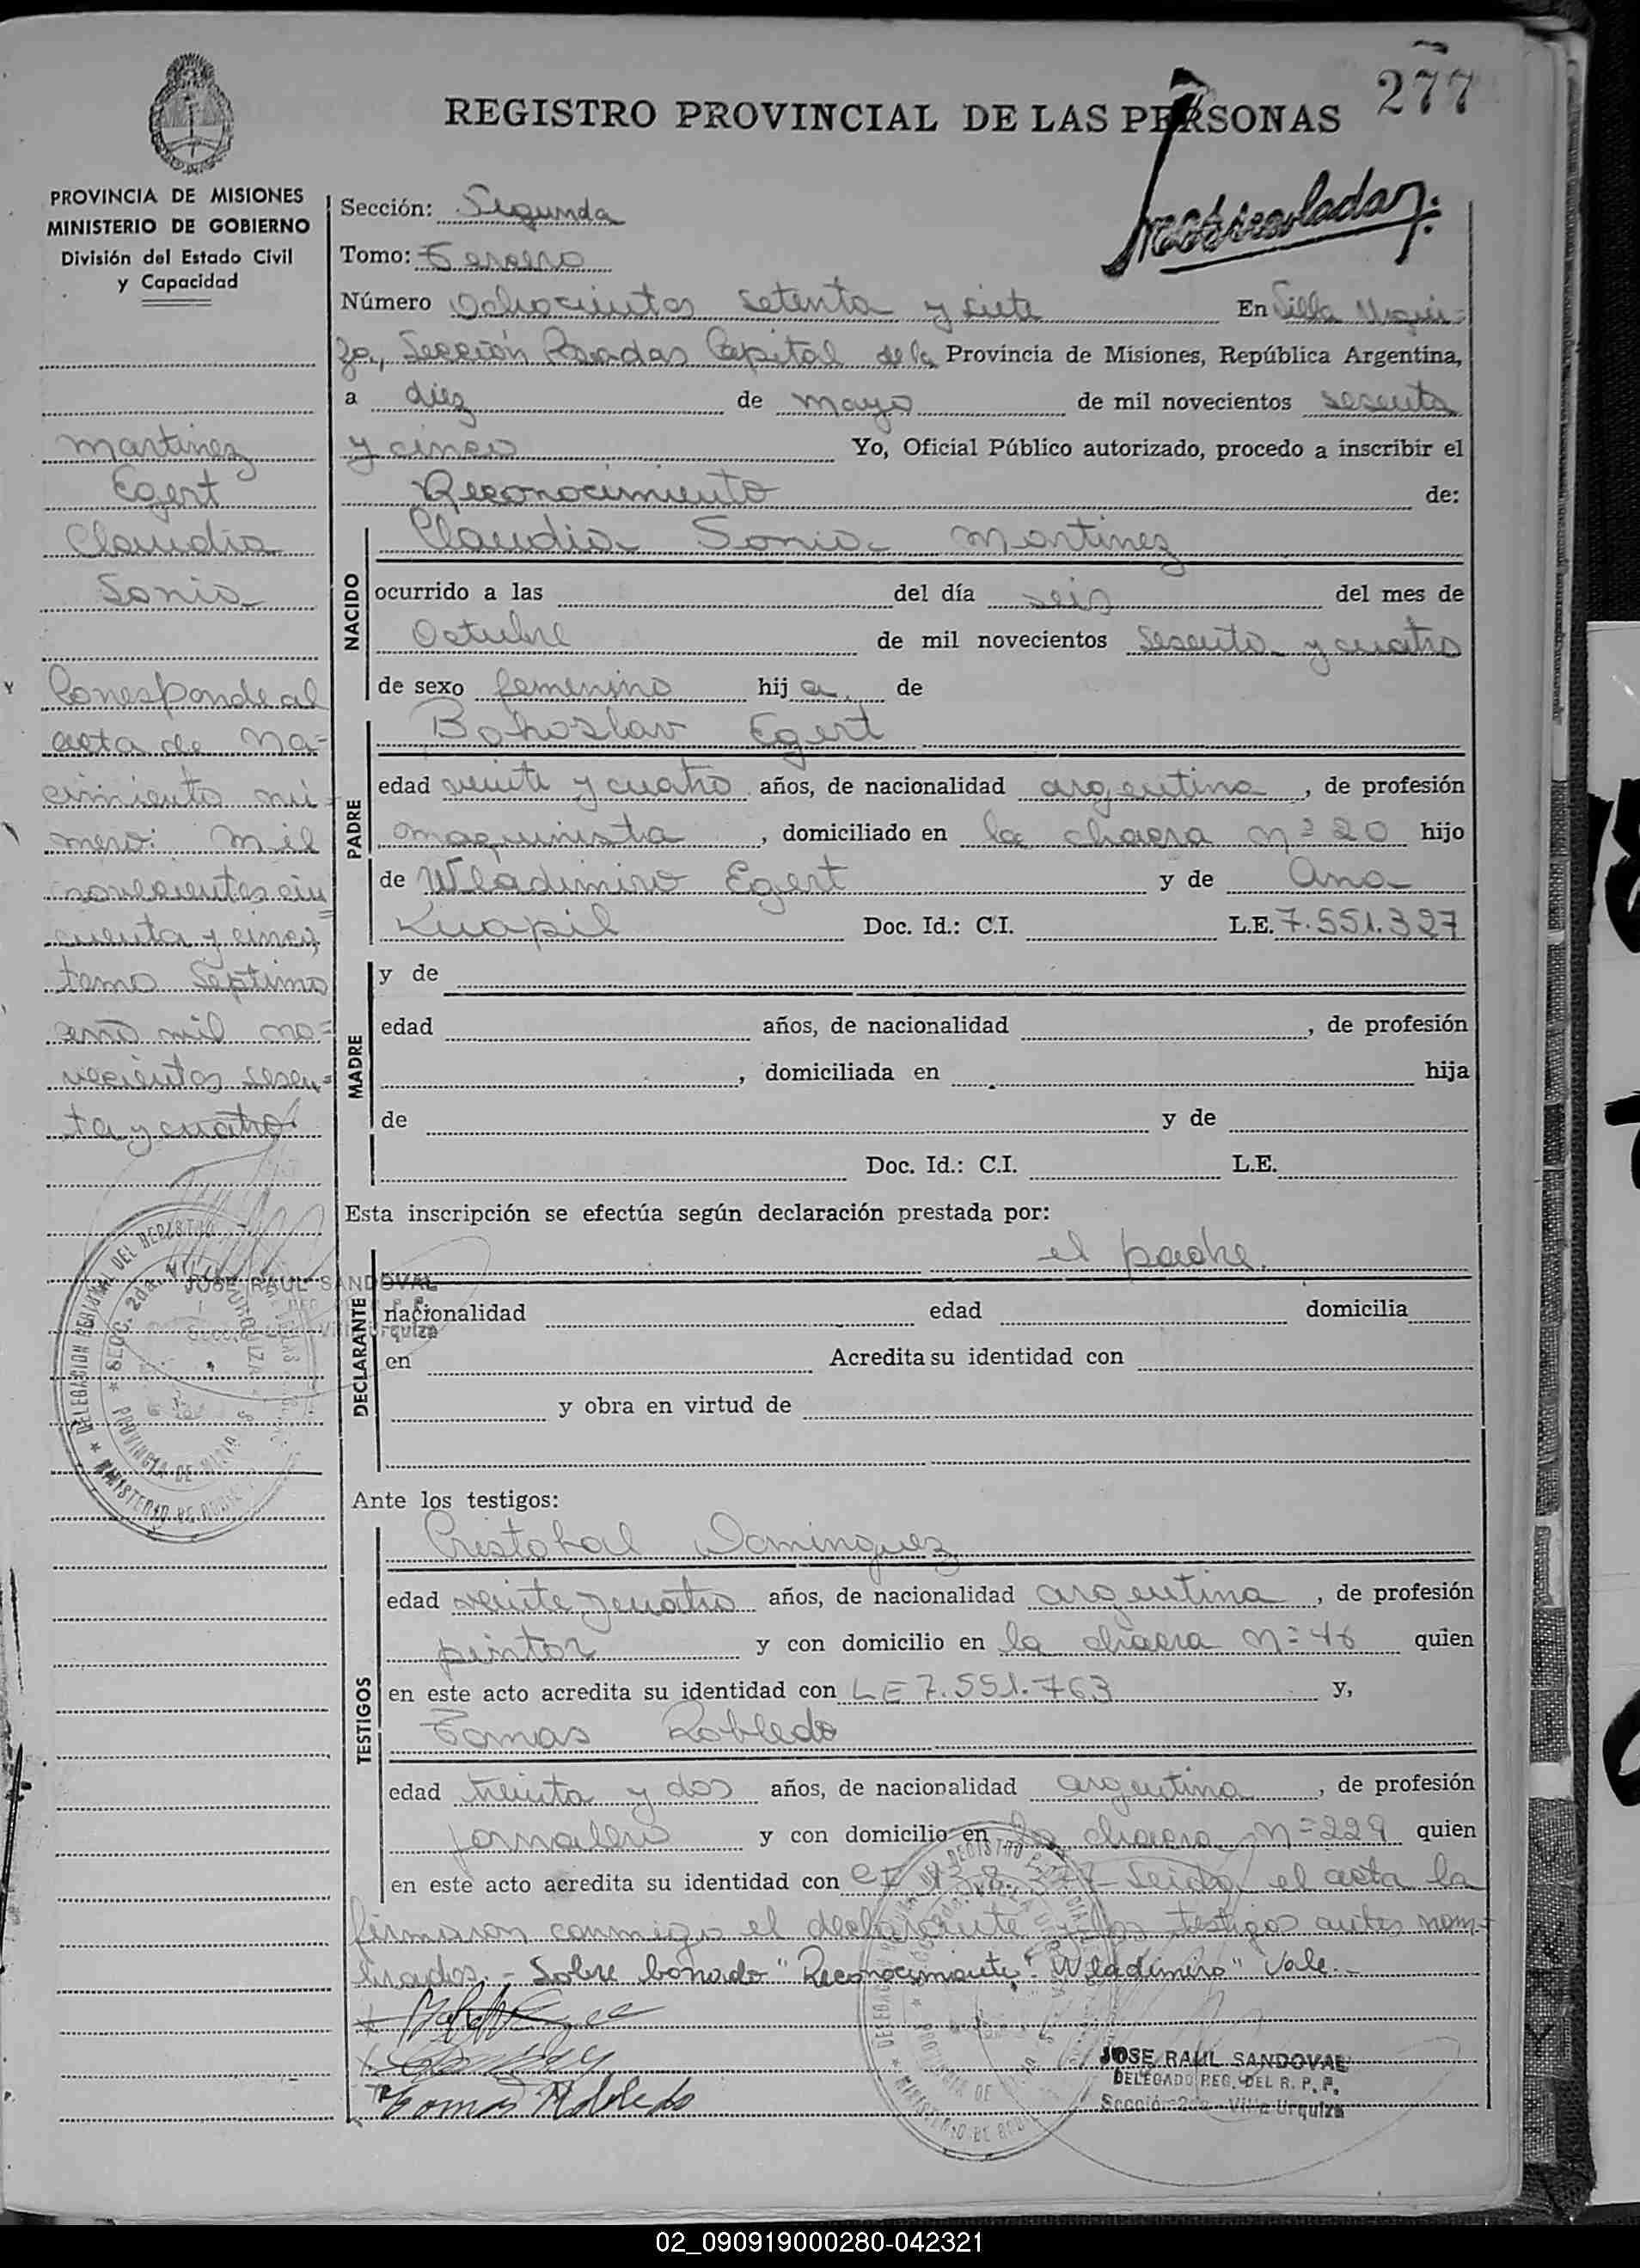 277
REGISTRO PROVINCIAL DE LAS PERSONAS
PROVINCIA DE MISIONES
MINISTERIO DE GOBIERNO
División del Estado Civil
y Capacidad
Martinez
Egert
Claudia
Sonia
Corresponde al
acta de Na-
cimiento nú-
mero: Mil
novecientos cin
cuenta y cinco,
tomo Septimo
año mil no-
vecientos sesen-
ta y cuatro
Sección: Segunda
Tomo: Tercero
Número Ochocientos setenta y siete En Villa Urqui-
za, Sección Posadas Capital de la Provincia de Misiones, República Argentina,
a diez de mayo de mil novecientos sesenta
y cinco Yo, Oficial Público autorizado, procedo a inscribir el
Reconocimiento de:
NACIDO
Claudia Sonia Martinez
ocurrido a las del día seis del mes de
Octubre de mil novecientos sesenta y cuatro
de sexo femenino hija de
PADRE
Bohoslav Egert
edad veinte y cuatro años, de nacionalidad argentina, de profesión
maquinista, domiciliado en la chacra nº 20 hijo
de Wladimiro Egert y de Ana
Kuapil Doc. Id.: C.I. L.E. 7.551.327
MADRE
y de
edad años, de nacionalidad , de profesión
, domiciliada en hija
de y de
Doc. Id.: C.I. L.E.
Esta inscripción se efectúa según declaración prestada por:
DECLARANTE
el padre.
nacionalidad edad domicilia
en Acredita su identidad con
y obra en virtud de
Ante los testigos:
TESTIGOS
Cristobal Dominguez
edad veinte y cuatro años, de nacionalidad argentina, de profesión
pintor y con domicilio en la chacra nº 46 quien
en este acto acredita su identidad con LE 7.551.763 y,
Tomas Robledo
edad treinta y dos años, de nacionalidad argentina, de profesión
jornalero y con domicilio en la chacra nº 229 quien
en este acto acredita su identidad con Leida el acta la
firmaron conmigo el declarante y los testigos antes nom-
brados.- Sobre borrado "Reconocimiento" "Wladimiro" Vale.-
Tomas Robledo
JOSE RAUL SANDOVAL
DELEGADO REG. DEL R. P. P.
Sección 2da. Villa Urquiza
JOSE RAUL SANDOVAL
02_090919000280-042321